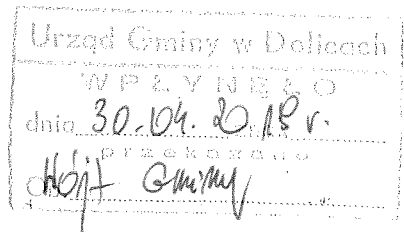 Urząd Gminy w Dolicach
WPŁYNĘŁO
dnia 30.04.2018 r.
przekazano
Wójt Gminy